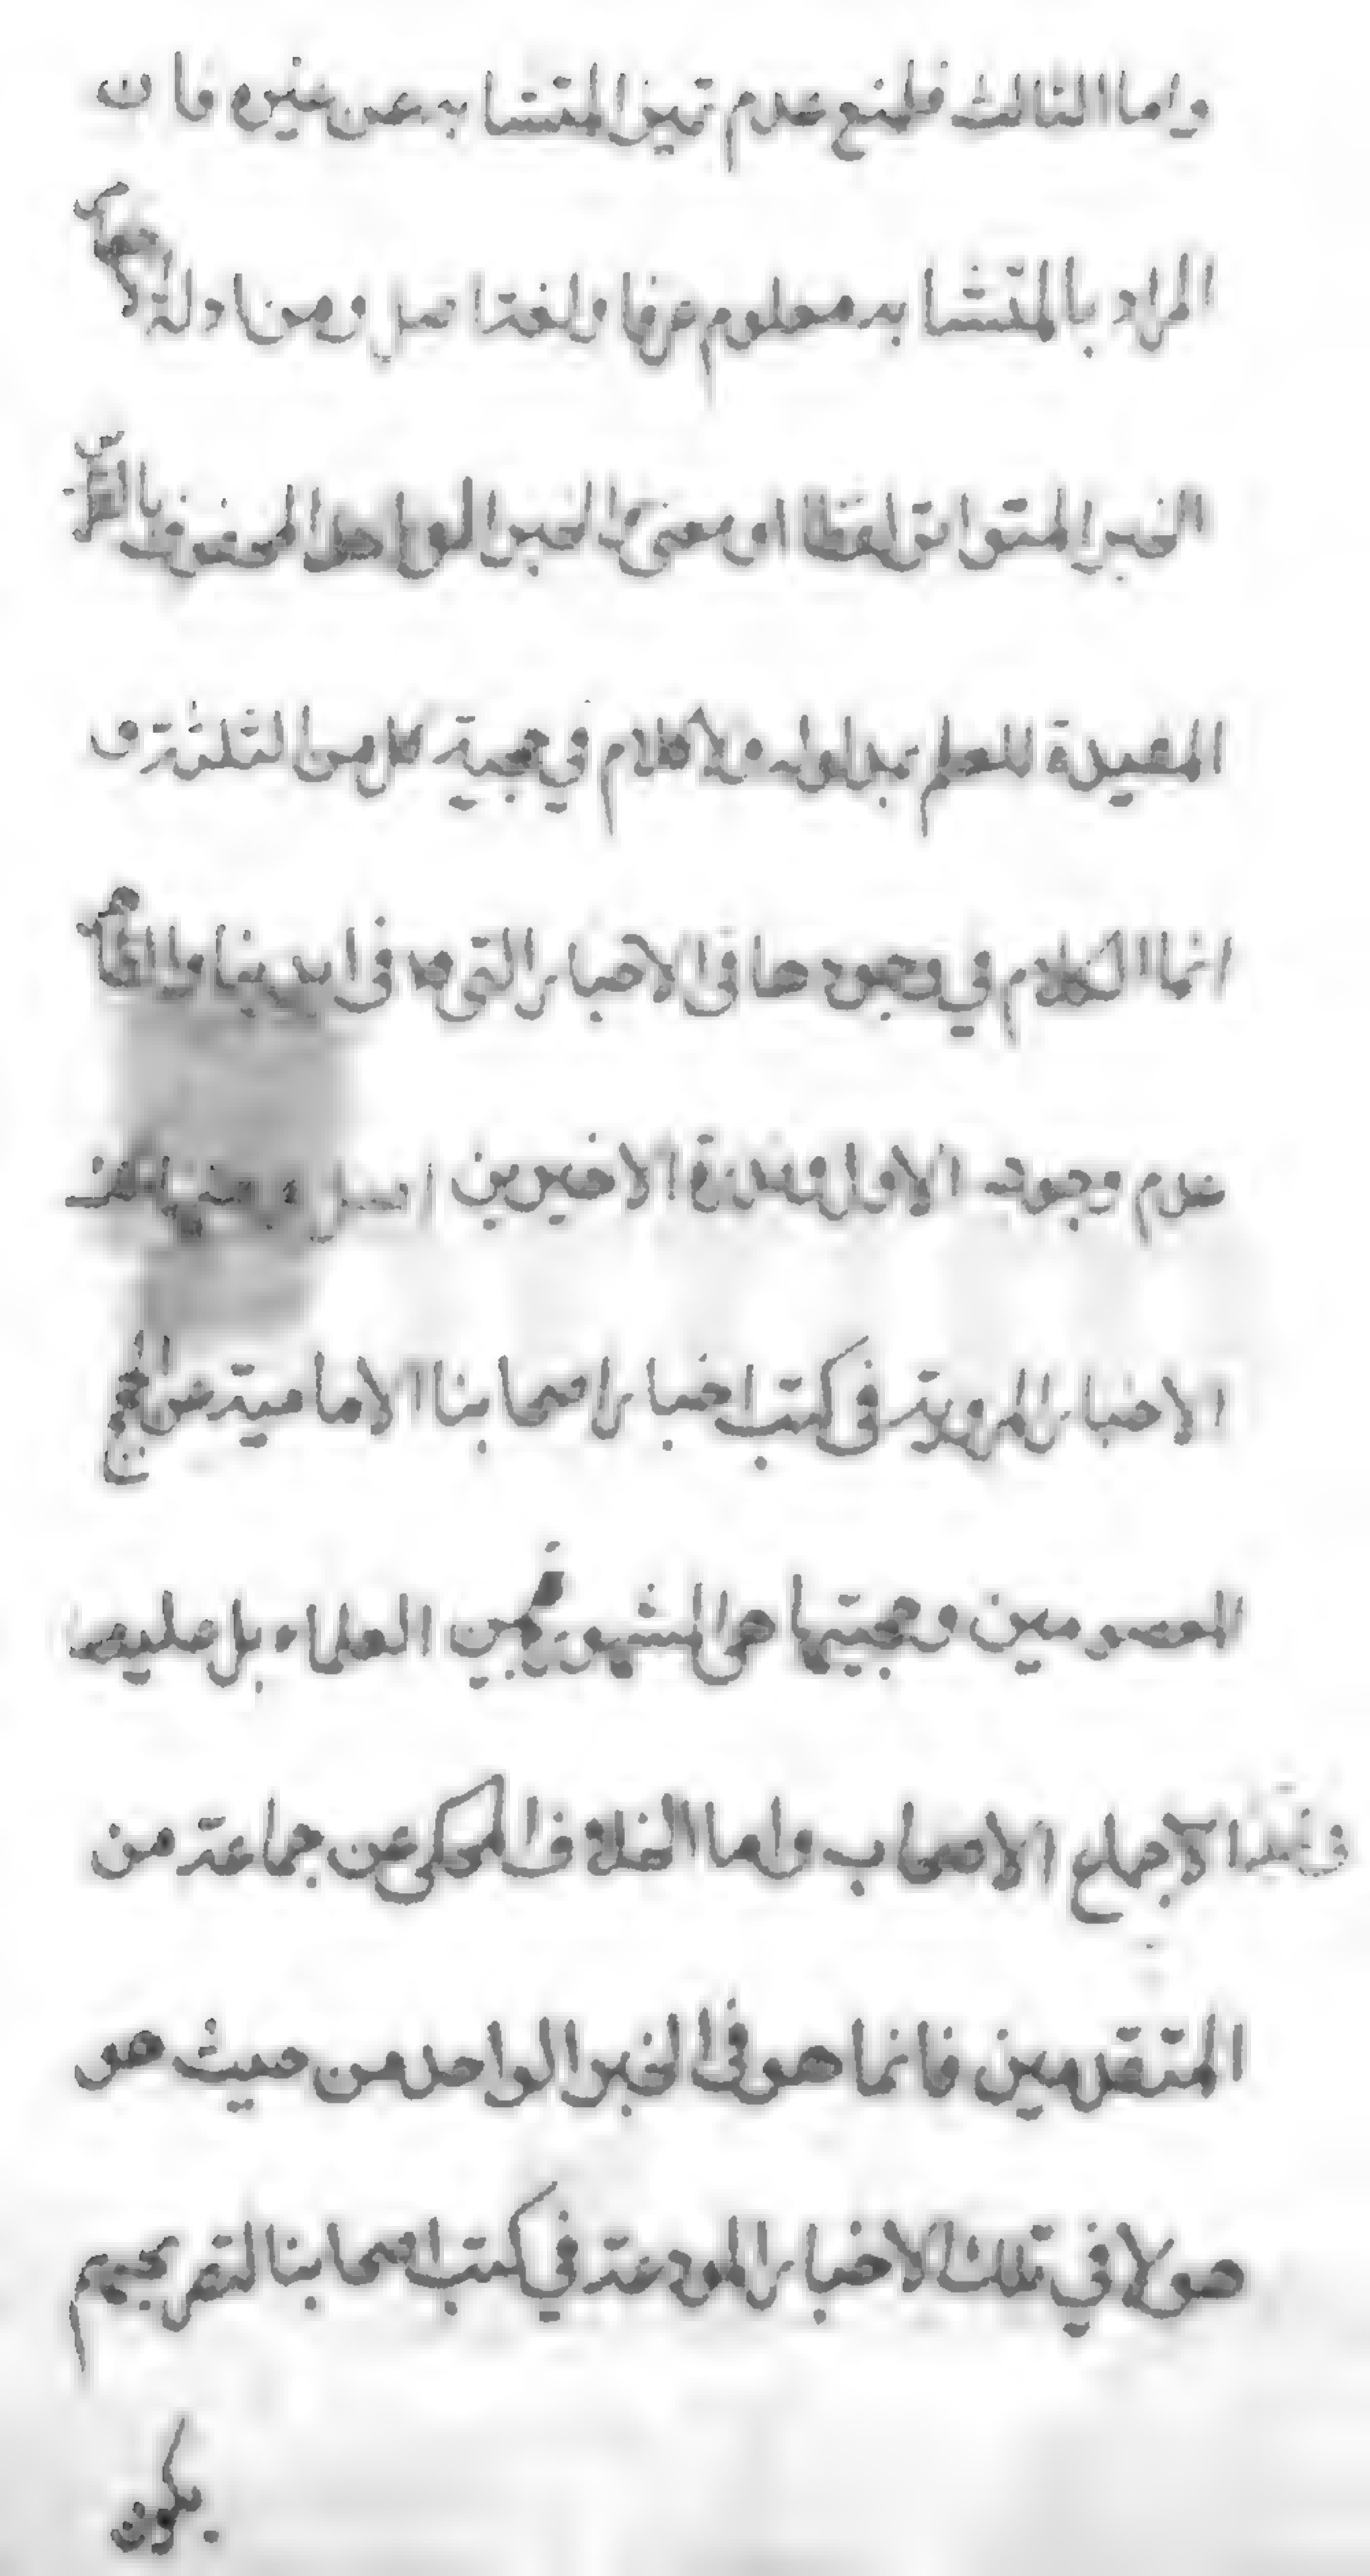 واما الثالث فلمنع عدم تميز المتشابه عن غيره فان
المراد بالمتشابه معلوم عرفا ولغة اصل ومن ادلة
الخبر المتواتر لفظا او معنى والخبر الواحد المحفوف
المفيدة للعلم بمدلوله ولا كلام في حجية كل من الثلثة و
انما الكلام في وجودها في الاخبار التي هي في ايدينا
عدم وجود الاول وندرة الاخيرين اصل ومنها
الاخبار المروية في كتب اخبار اصحابنا الامامية عن
المعصومين وحجيتها هي المشهورة بين العلماء بل عليها
الاجماع الاصحاب واما الخلاف المحكى عن جماعة من
المتقدمين فانما هو في الخبر الواحد من حيث هو
هو لا في تلك الاخبار المودعة في كتب اصحابنا لتصريحهم
بكون